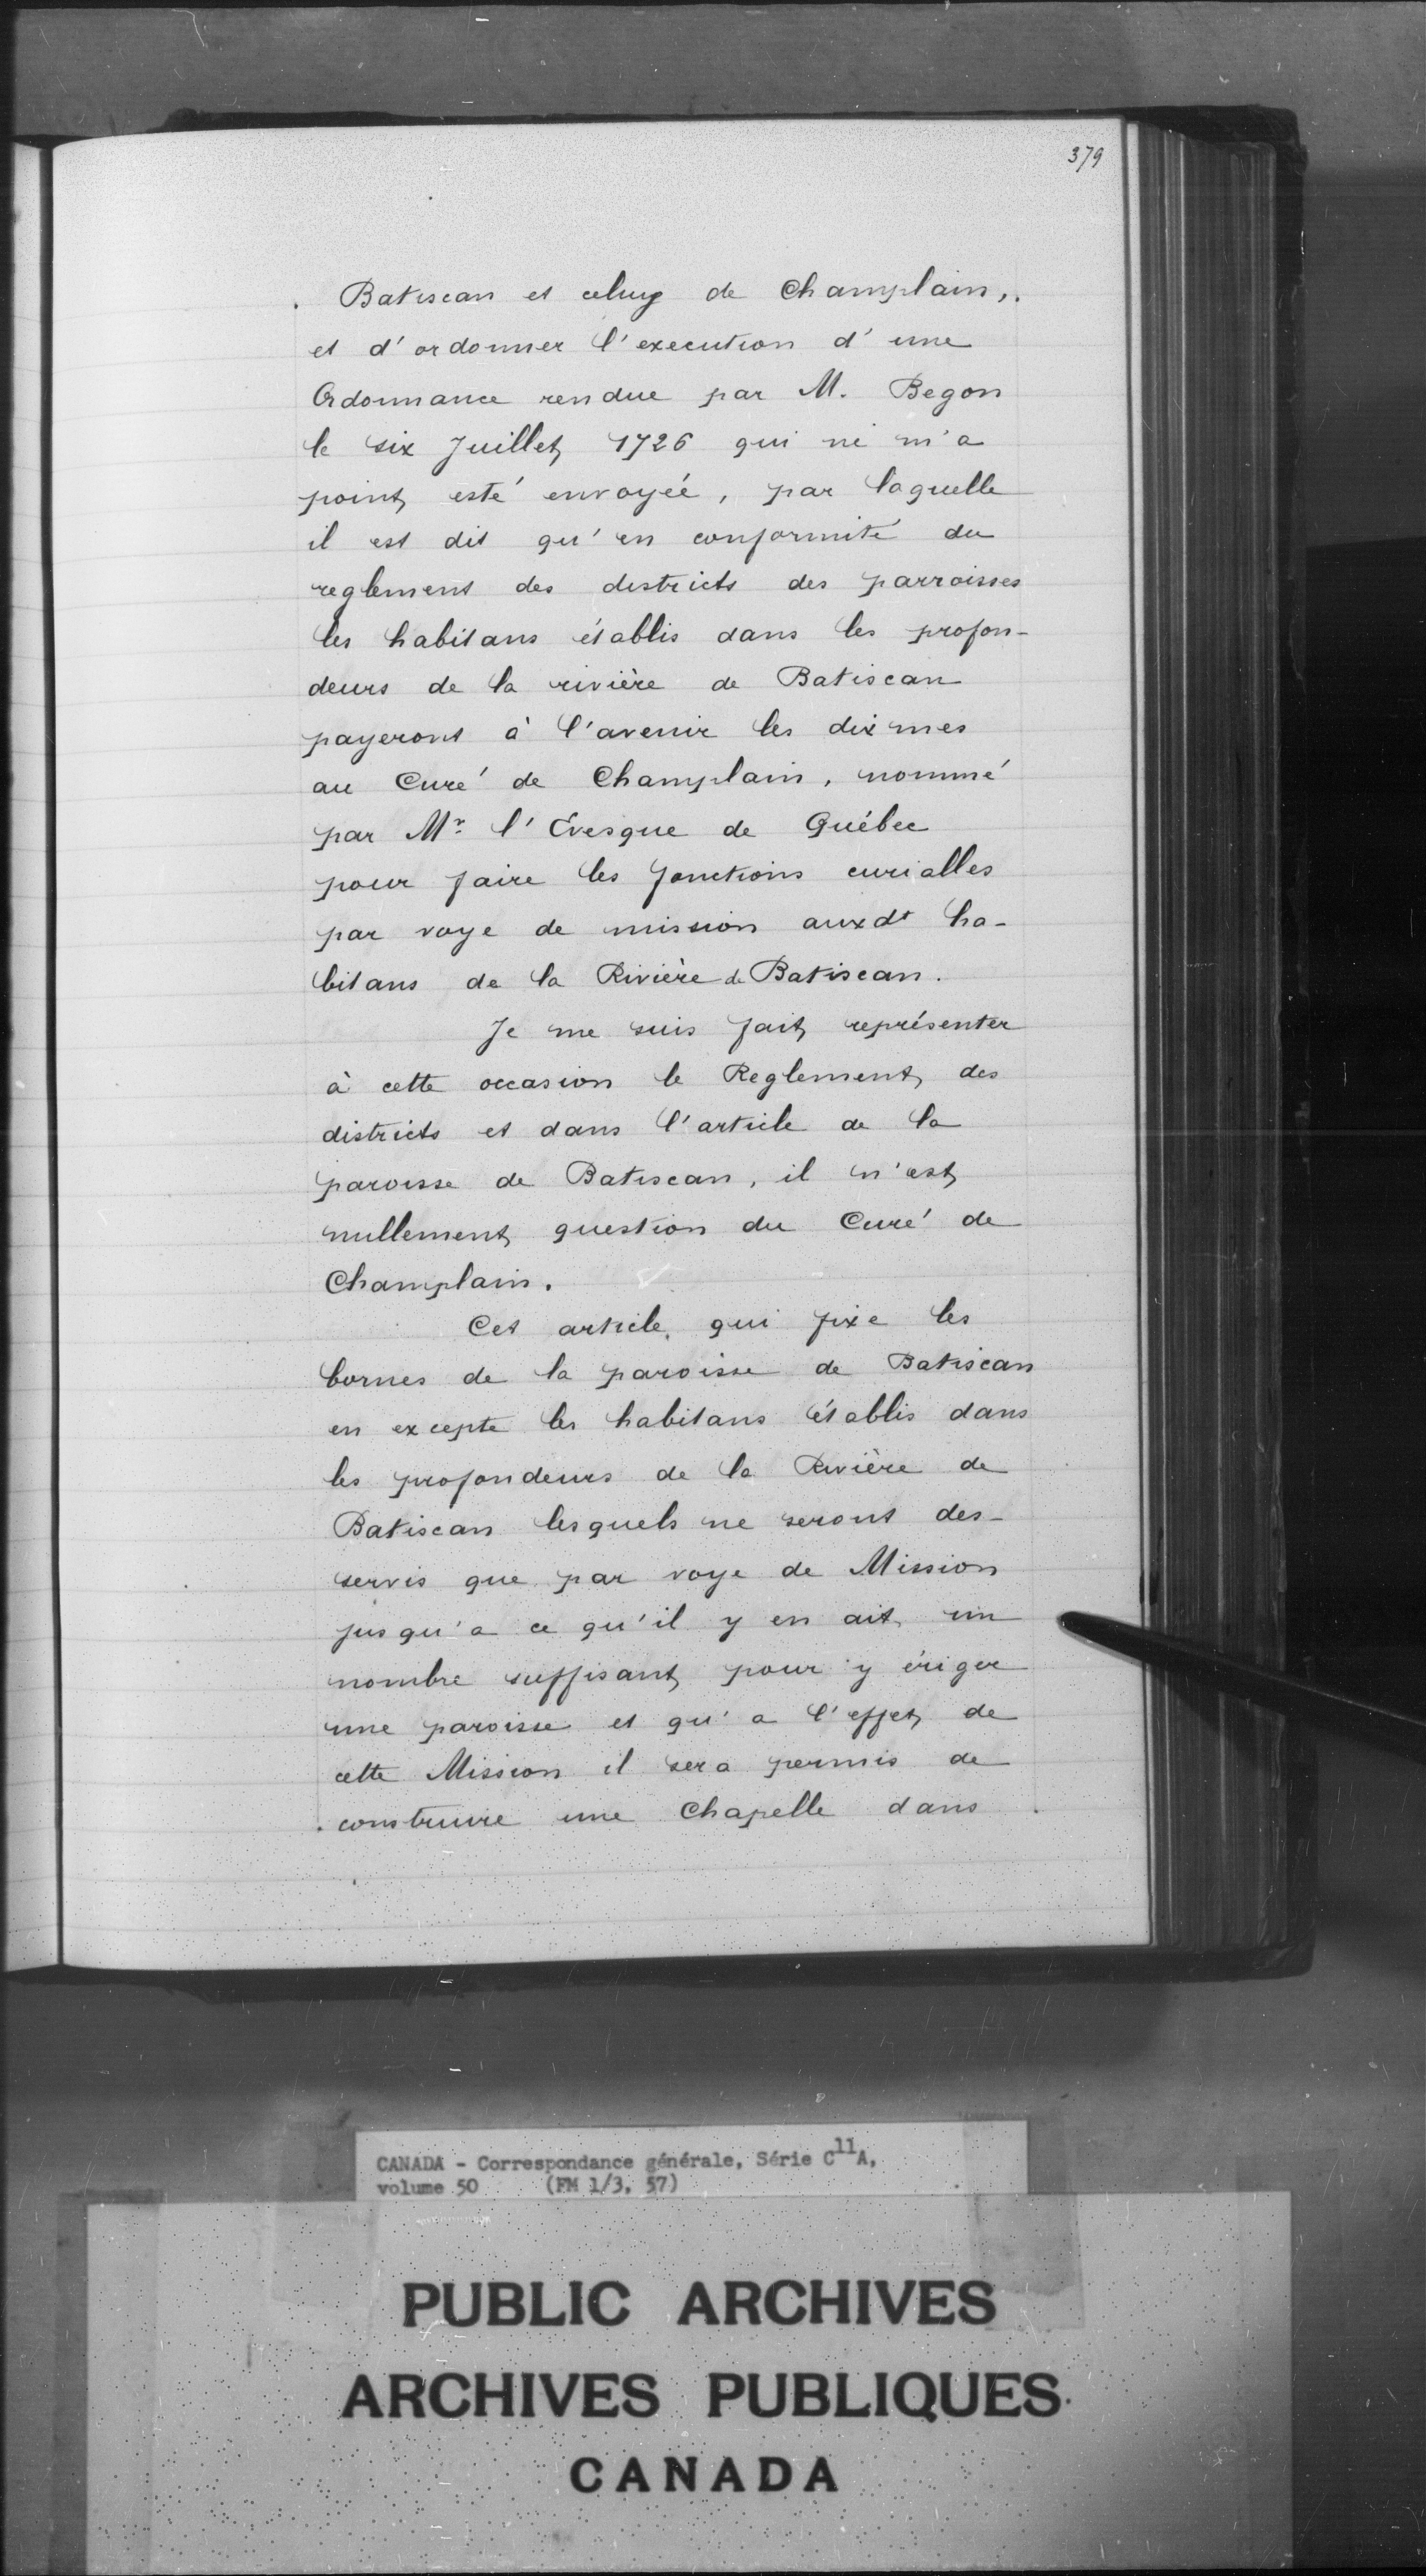 379
Batiscan et celuy de Champlain,
et d'ordonner l'execution d'une
Ordonnance rendue par M. Begon
le six Juillet 1726 qui ne m'a
point esté envoyée, par laquelle
il est dit qu'en conformité du
reglement des districts des parroisses
les habitans établis dans les profon-
deurs de la rivière de Batiscan
payeront à l'avenir les dixmes
au Curé de Champlain, nommé
par Mr. l'Evesque de Québec
pour faire les fonctions curialles
par voye de mission auxdt ha-
bitans de la Rivière de Batiscan.
Je me suis fait représenter
à cette occasion le Reglement des
districts et dans l'article de la
paroisse de Batiscan, il n'est
nullement question du Curé de
Champlain.
Cet article, qui fixe les
bornes de la paroisse de Batiscan
en excepte les habitans établis dans
les profondeurs de la Rivière de
Batiscan lesquels ne seront des-
servis que par voye de Mission
jusqu'a ce qu'il y en ait un
nombre suffisant pour y ériger
une paroisse et qu'a l'effet de
cette Mission il sera permis de
construire une Chapelle dans
CANADA - Correspondance générale, Série C11A,
volume 50 (FM 1/3, 57)
PUBLIC ARCHIVES
ARCHIVES PUBLIQUES
CANADA